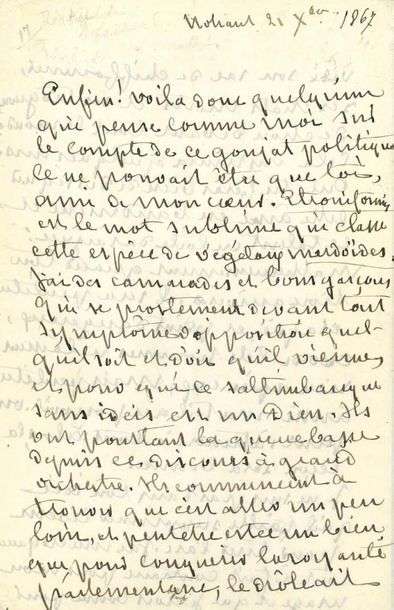 Nohant 21 Xbre 1867
Enfin! voilà donc quelqu'un
qui pense comme moi sur
le compte de ce goujat politique
ce ne pouvait être que toi,
ami de mon cœur. Etroniformes
est le mot sublime qui classe
cette espèce de végétaux merdoïdes.
J'ai des camarades et bons garçons
qui se prosternent devant tout
symptôme d'opposition quel-
qu'il soit et d'où qu'il vienne,
et pour qui ce saltimbanque
sans idées est un Dieu. Ils
ont pourtant la queue basse
depuis ce discours à grand
orchestre. Ils commencent à
trouver que c'est aller un peu
loin, et peut etre est ce un bien
que pour conquérir la royauté
parlementaire, le drôle ait